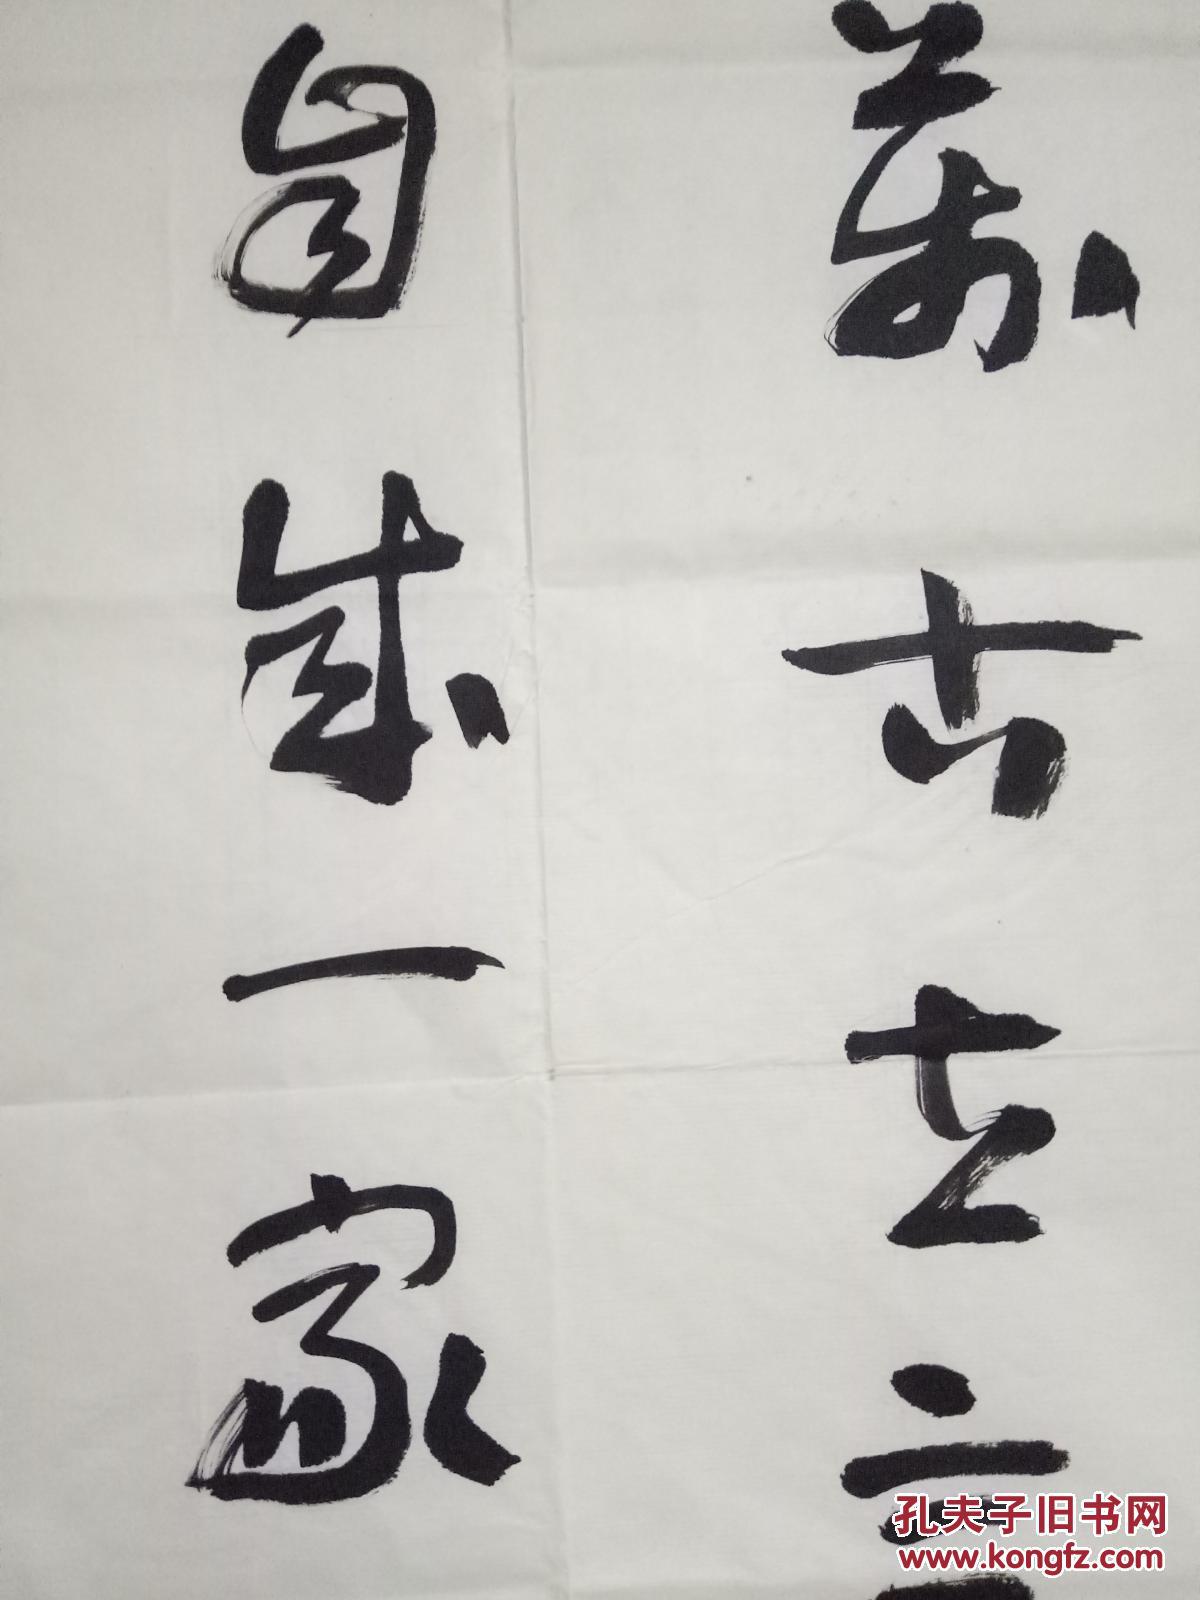 萬古在
自成一家
孔夫子旧书网
www.kongfz.com